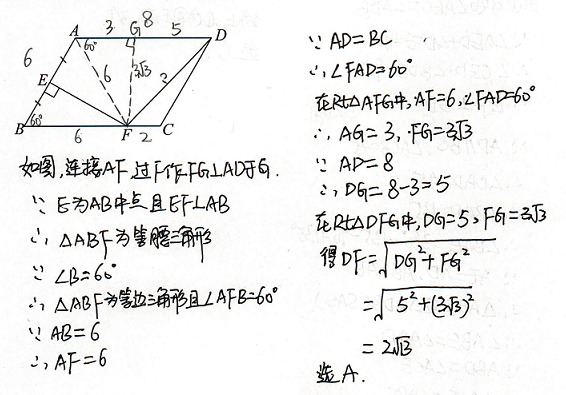 A 3 G 8 5 D
60°
6
6
3√3
?
E
B 60° 6 F 2 C
如图,连接AF,过F作FG⊥AD于G.
∵ E为AB中点且EF⊥AB
∴ △ABF为等腰三角形
∵ ∠B=60°
∴ △ABF为等边三角形且∠AFB=60°
∵ AB=6
∴ AF=6
∵ AD=BC
∴ ∠FAD=60°
在Rt△AFG中,AF=6,∠FAD=60°
∴ AG=3, FG=3√3
∵ AD=8
∴ DG=8-3=5
在Rt△DFG中,DG=5,FG=3√3
得DF=√DG²+FG²
=√5²+(3√3)²
=2√13
选A.